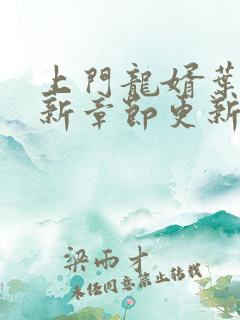 上門龍婿葉
新章節更新
梁雨才
未经同意禁止转载